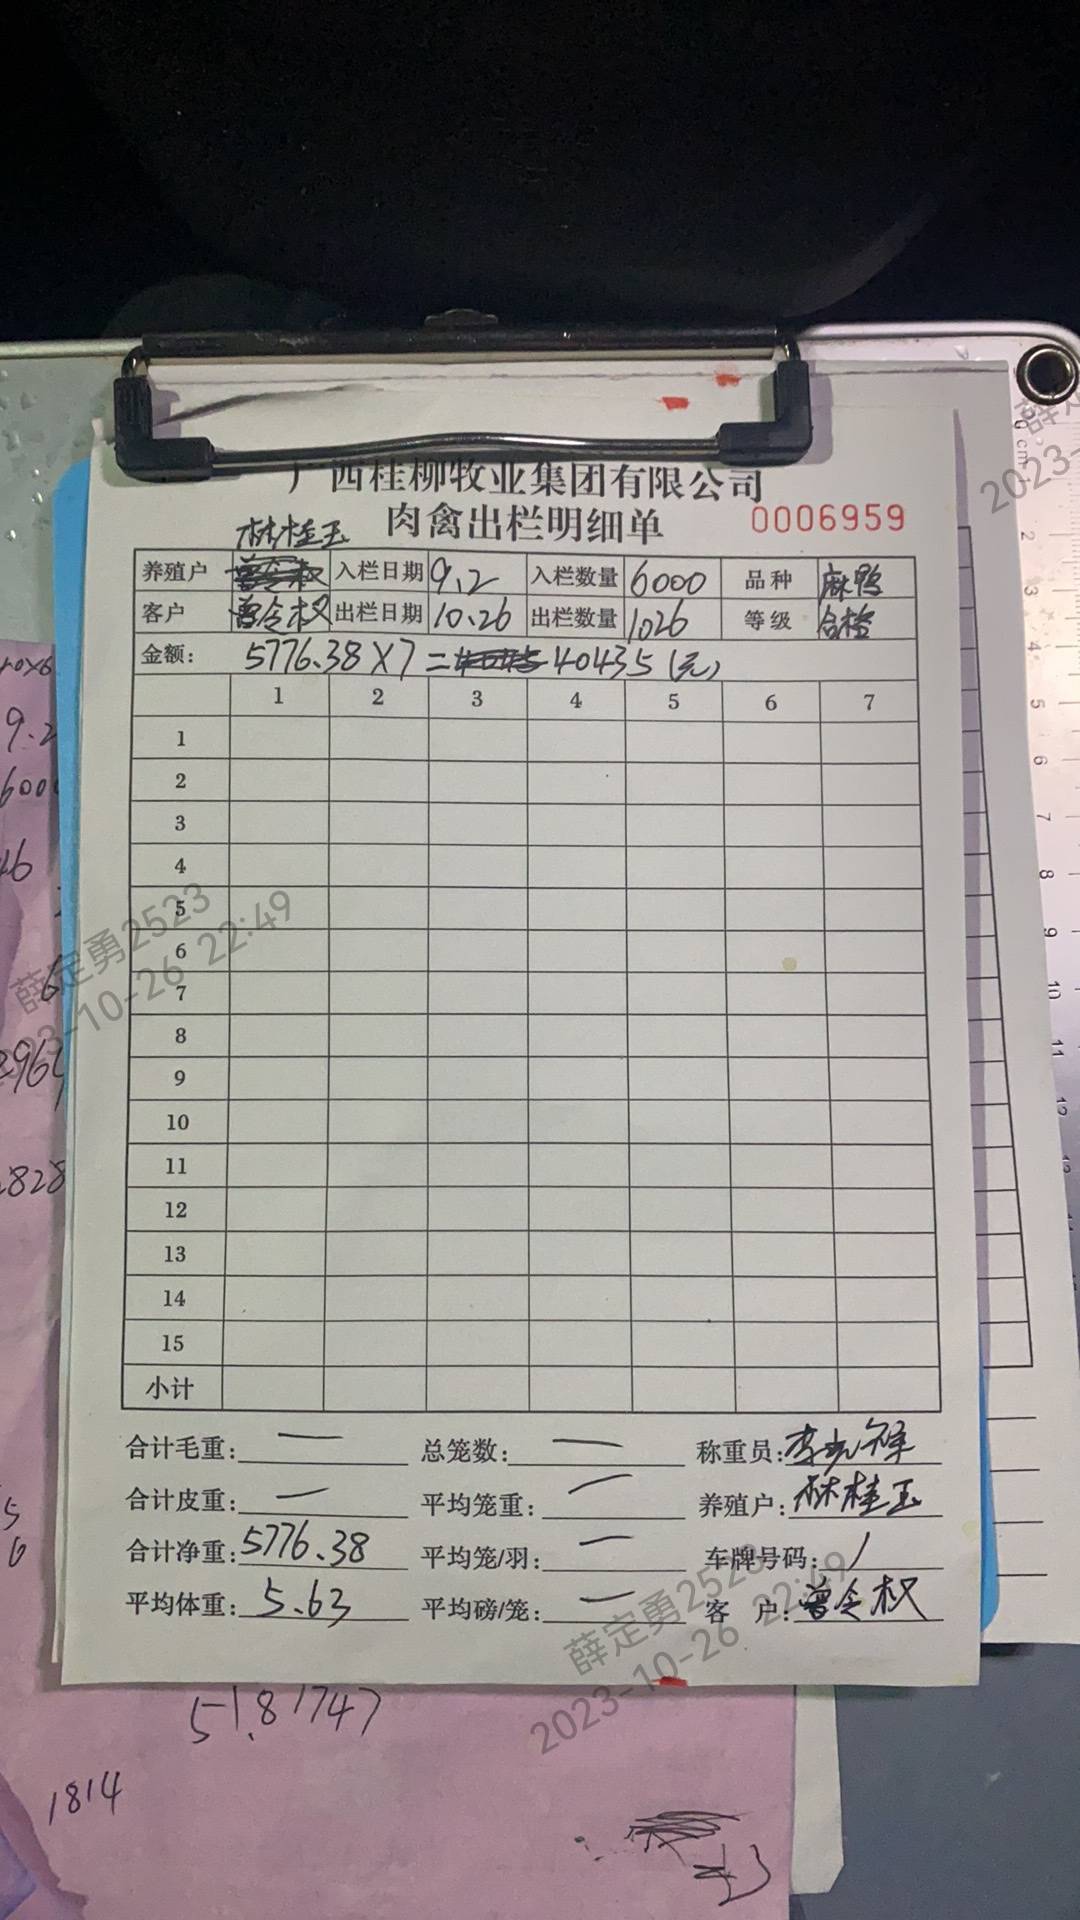 广西桂柳牧业集团有限公司
肉禽出栏明细单 0006959
林桂玉
养殖户 曾令权 入栏日期 9.2 入栏数量 6000 品种 麻鸭
客户 曾令权 出栏日期 10.26 出栏数量 1026 等级 合格
金额: 5776.38×7= 40435(元)
1 2 3 4 5 6 7
1
2
3
4
5
6
7
8
9
10
11
12
13
14
15
小计
合计毛重: — 总笼数: — 称重员:
合计皮重: — 平均笼重: — 养殖户: 林桂玉
合计净重: 5776.38 平均笼/羽: — 车牌号码: /
平均体重: 5.63 平均磅/笼: — 客 户: 曾令权
51.81747
1814
9.2
600
2828
薛定勇2523
2023-10-26 22:49
薛定勇2523
2023-10-26 22:49
cm
2
3
4
5
6
7
8
9
10
11
12